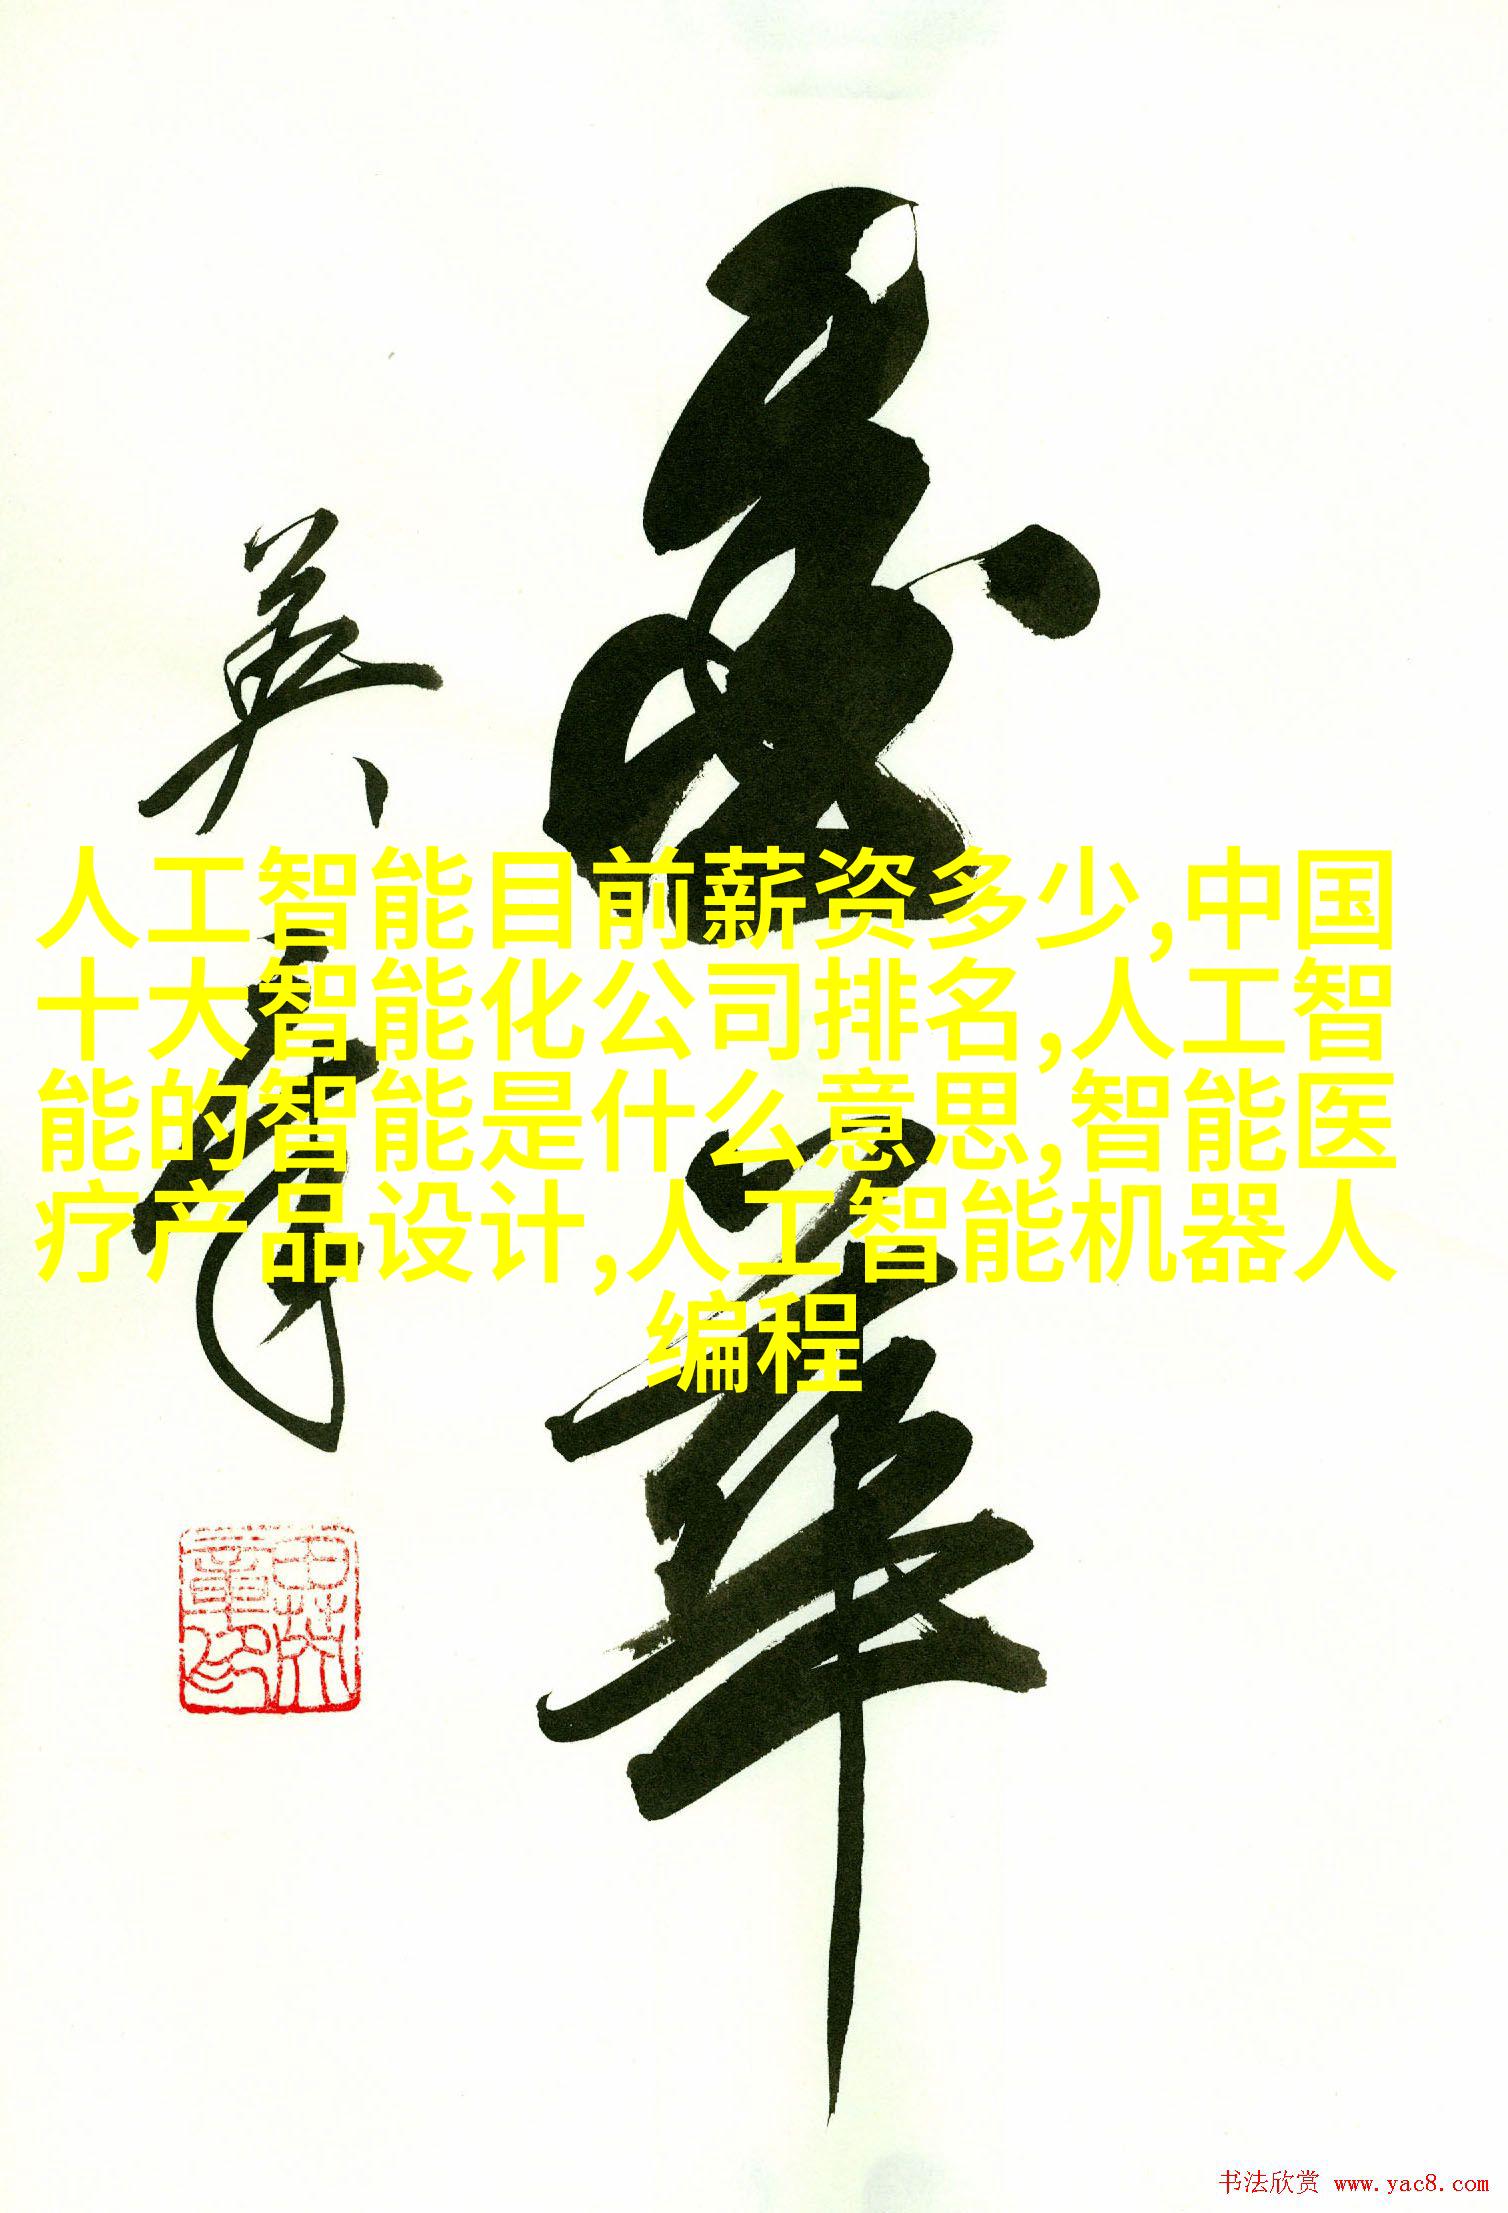 人工智能目前薪资多少,中国
十大智能化公司排名,人工智
能的智能是什么意思,智能医
疗产品设计,人工智能机器人
编程
书法欣赏 www.yac8.com